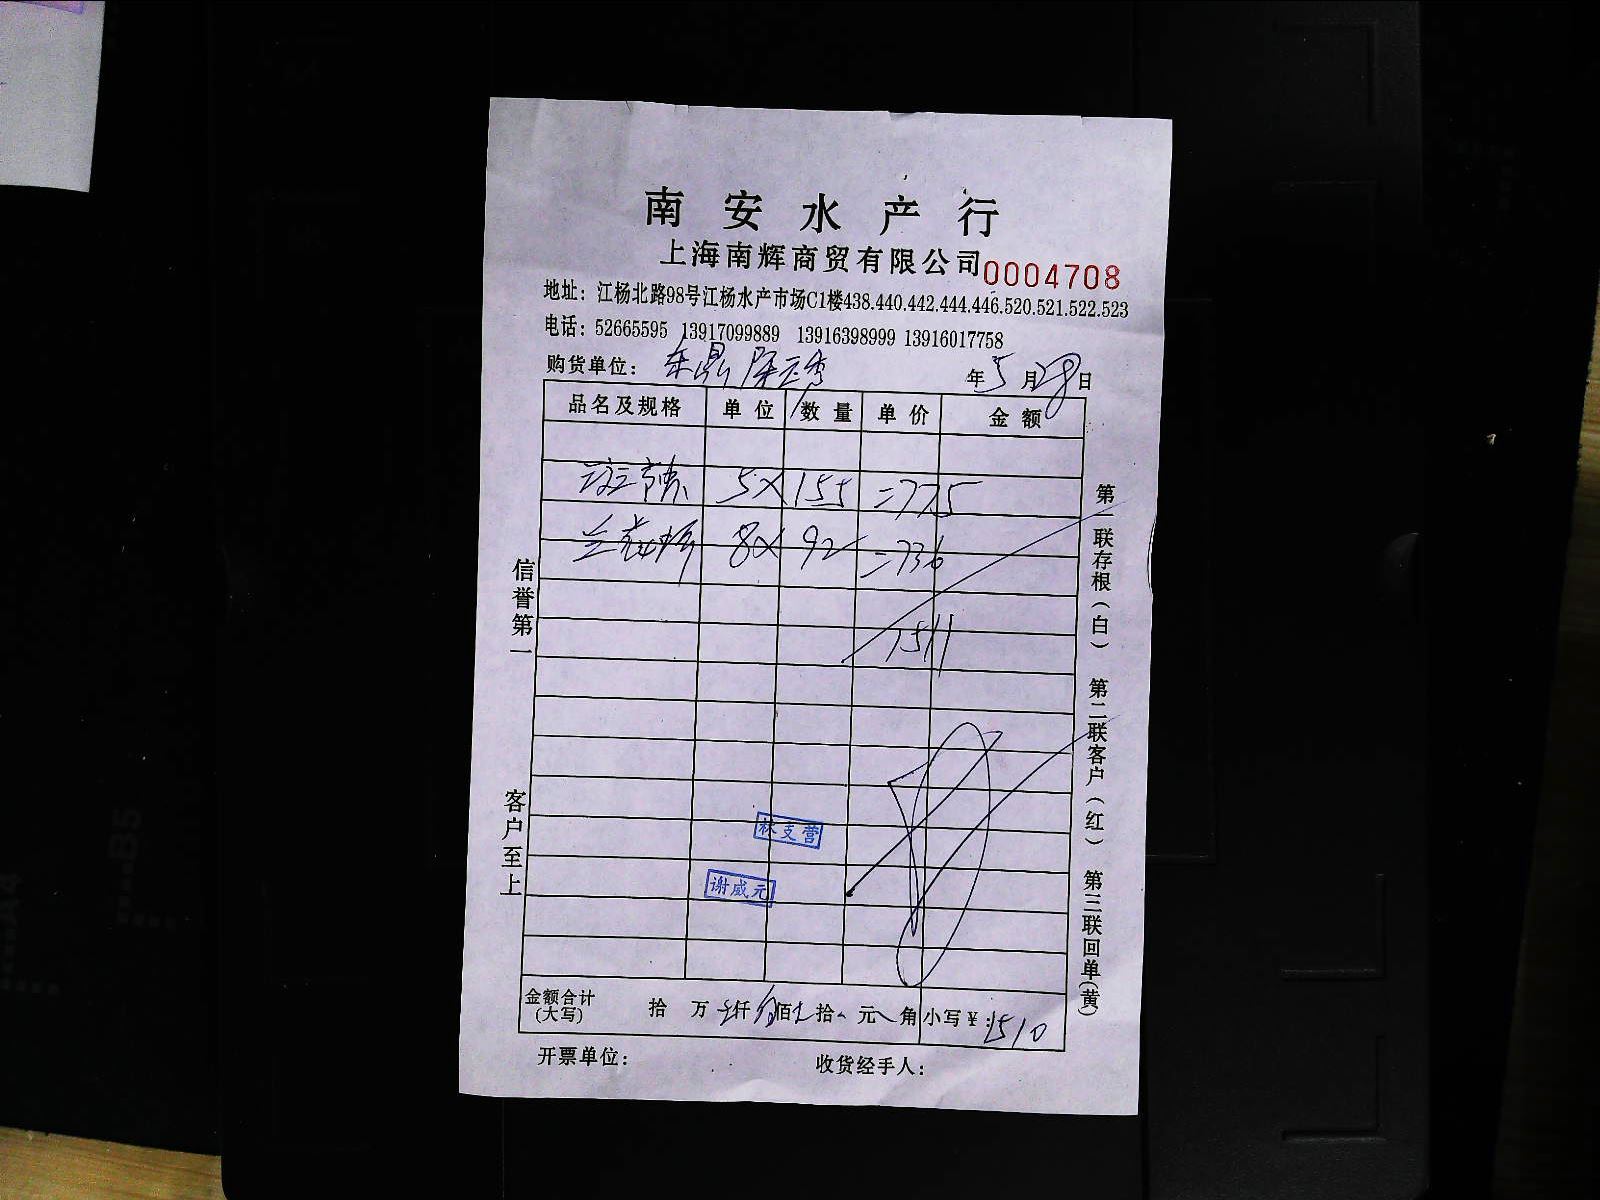 南安水产行
上海南辉商贸有限公司 0004708
地址：江杨北路98号江杨水产市场C1楼438.440.442.444.446.520.521.522.523
电话：52665595 13917099889 13916398999 13916017758
购货单位： 年 5 月 28 日
品名及规格 单位 数量 单价 金额
5× 155 =775
8× 92 =736
1511
林支营
谢成元
金额合计(大写) 拾 万 仟 佰 拾 元 角 小写¥:1510
开票单位： 收货经手人：
信誉第一
客户至上
第一联存根(白) 第二联客户(红) 第三联回单(黄)